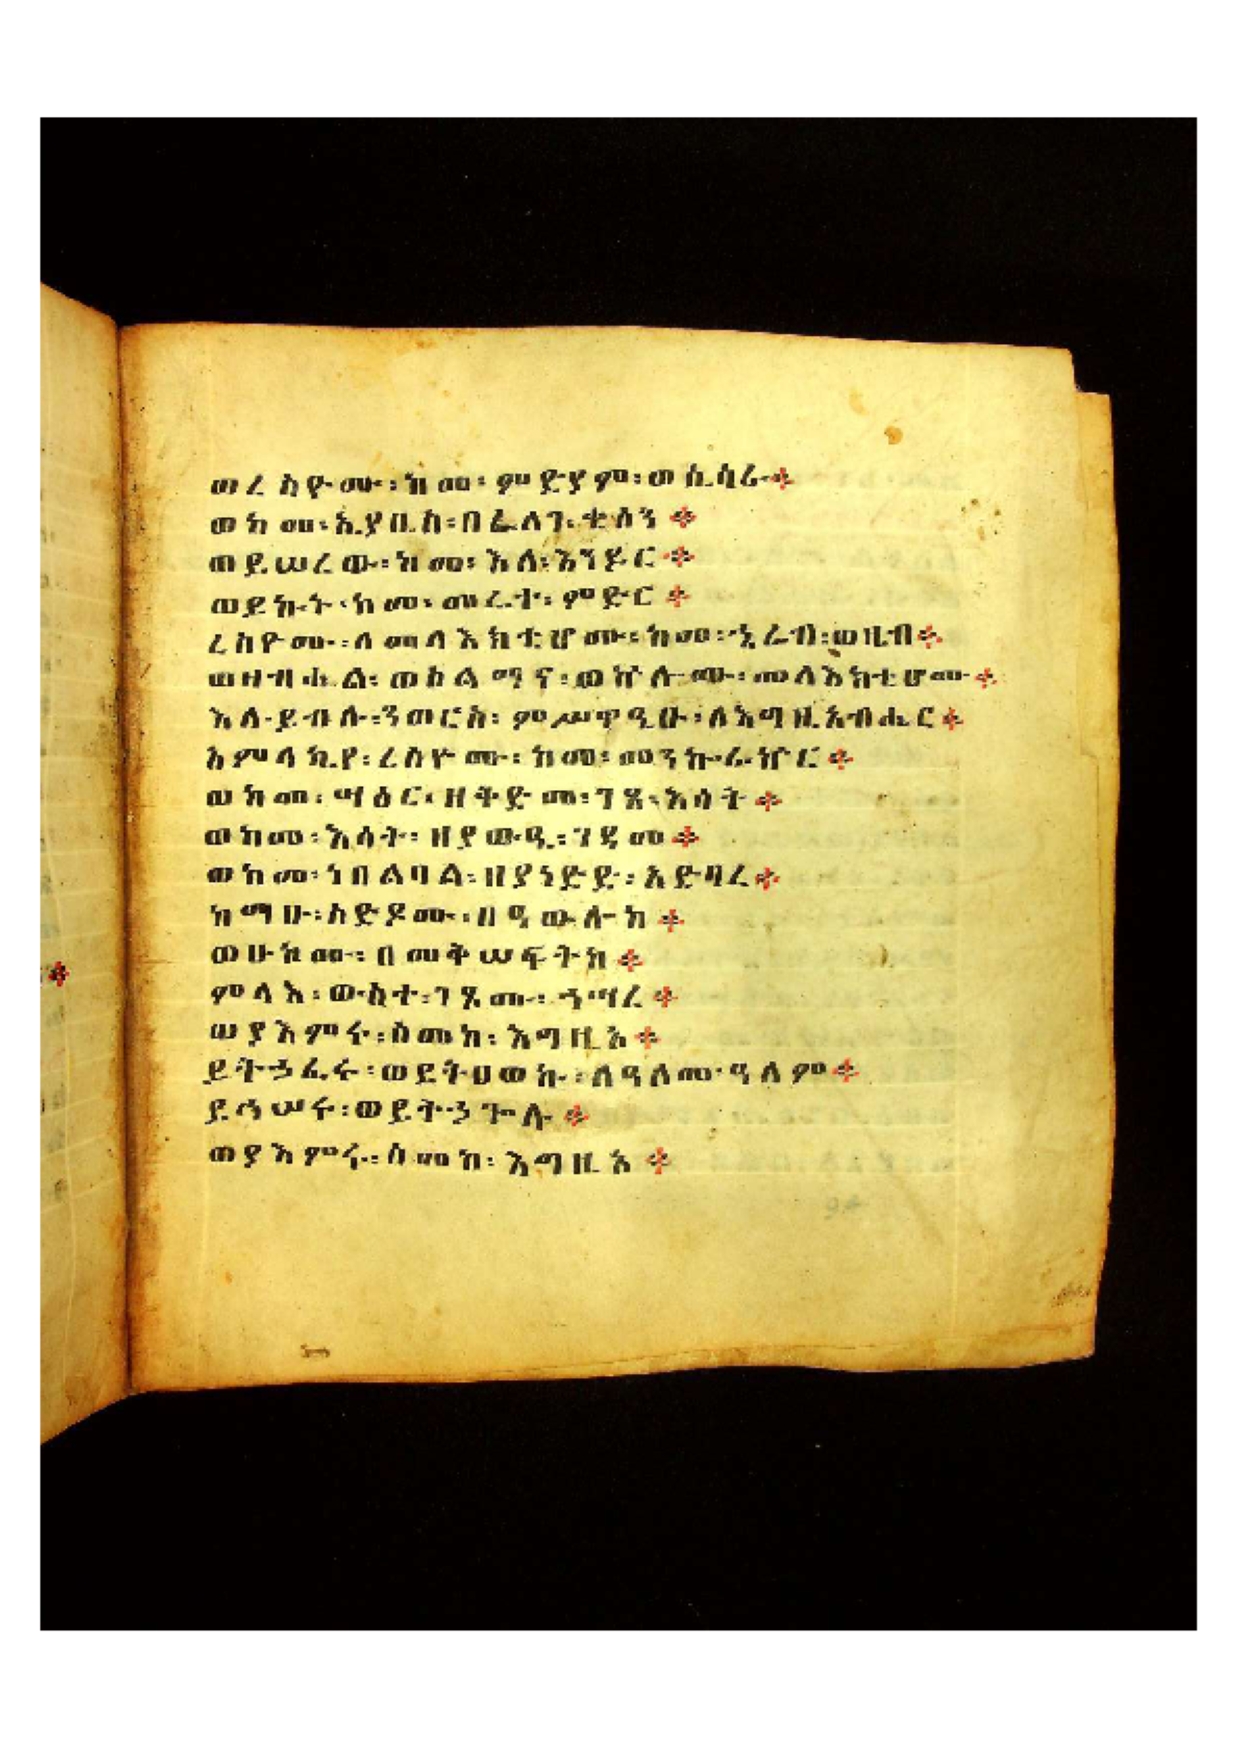 ወረስዮሙ፡ከመ፡ምድያም፡ወሲሳራ፨
ወከመ፡ኢያቢስ፡በፈለገ፡ቂሶን፨
ወይሠረው፡ከመ፡እለ፡እንዶር፨
ወይኩኑ፡ከመ፡መሬተ፡ምድር፨
ረስዮሙ፡ለመላእክቲሆሙ፡ከመ፡ኄሬብ፡ወዜብ፨
ወዛብሔል፡ወስልማና፡ወኵሉሙ፡መላእክቲሆሙ፨
እለ፡ይብሉ፡ንወርስ፡ምሥዋዒሁ፡ለእግዚአብሔር፨
አምላኪየ፡ረስዮሙ፡ከመ፡መንኰራኵር፨
ወከመ፡ሣዕር፡ዘቅድመ፡ገጸ፡እሳት፨
ወከመ፡እሳት፡ዘያውዒ፡ገዳመ፨
ወከመ፡ነበልባል፡ዘያነድድ፡አድባረ፨
ከማሁ፡ስድዶሙ፡በዓውሎከ፨
ወሁከሙ፡በመቅሠፍትከ፨
ምላእ፡ውስተ፡ገጾሙ፡ኀሣረ፨
ወያእምሩ፡ስመከ፡እግዚኦ፨
ይትኃፈሩ፡ወይትሀወኩ፡ለዓለመ፡ዓለም፨
ይኅሠሩ፡ወይትኃጐሉ፨
ወያእምሩ፡ስመከ፡እግዚኦ፨